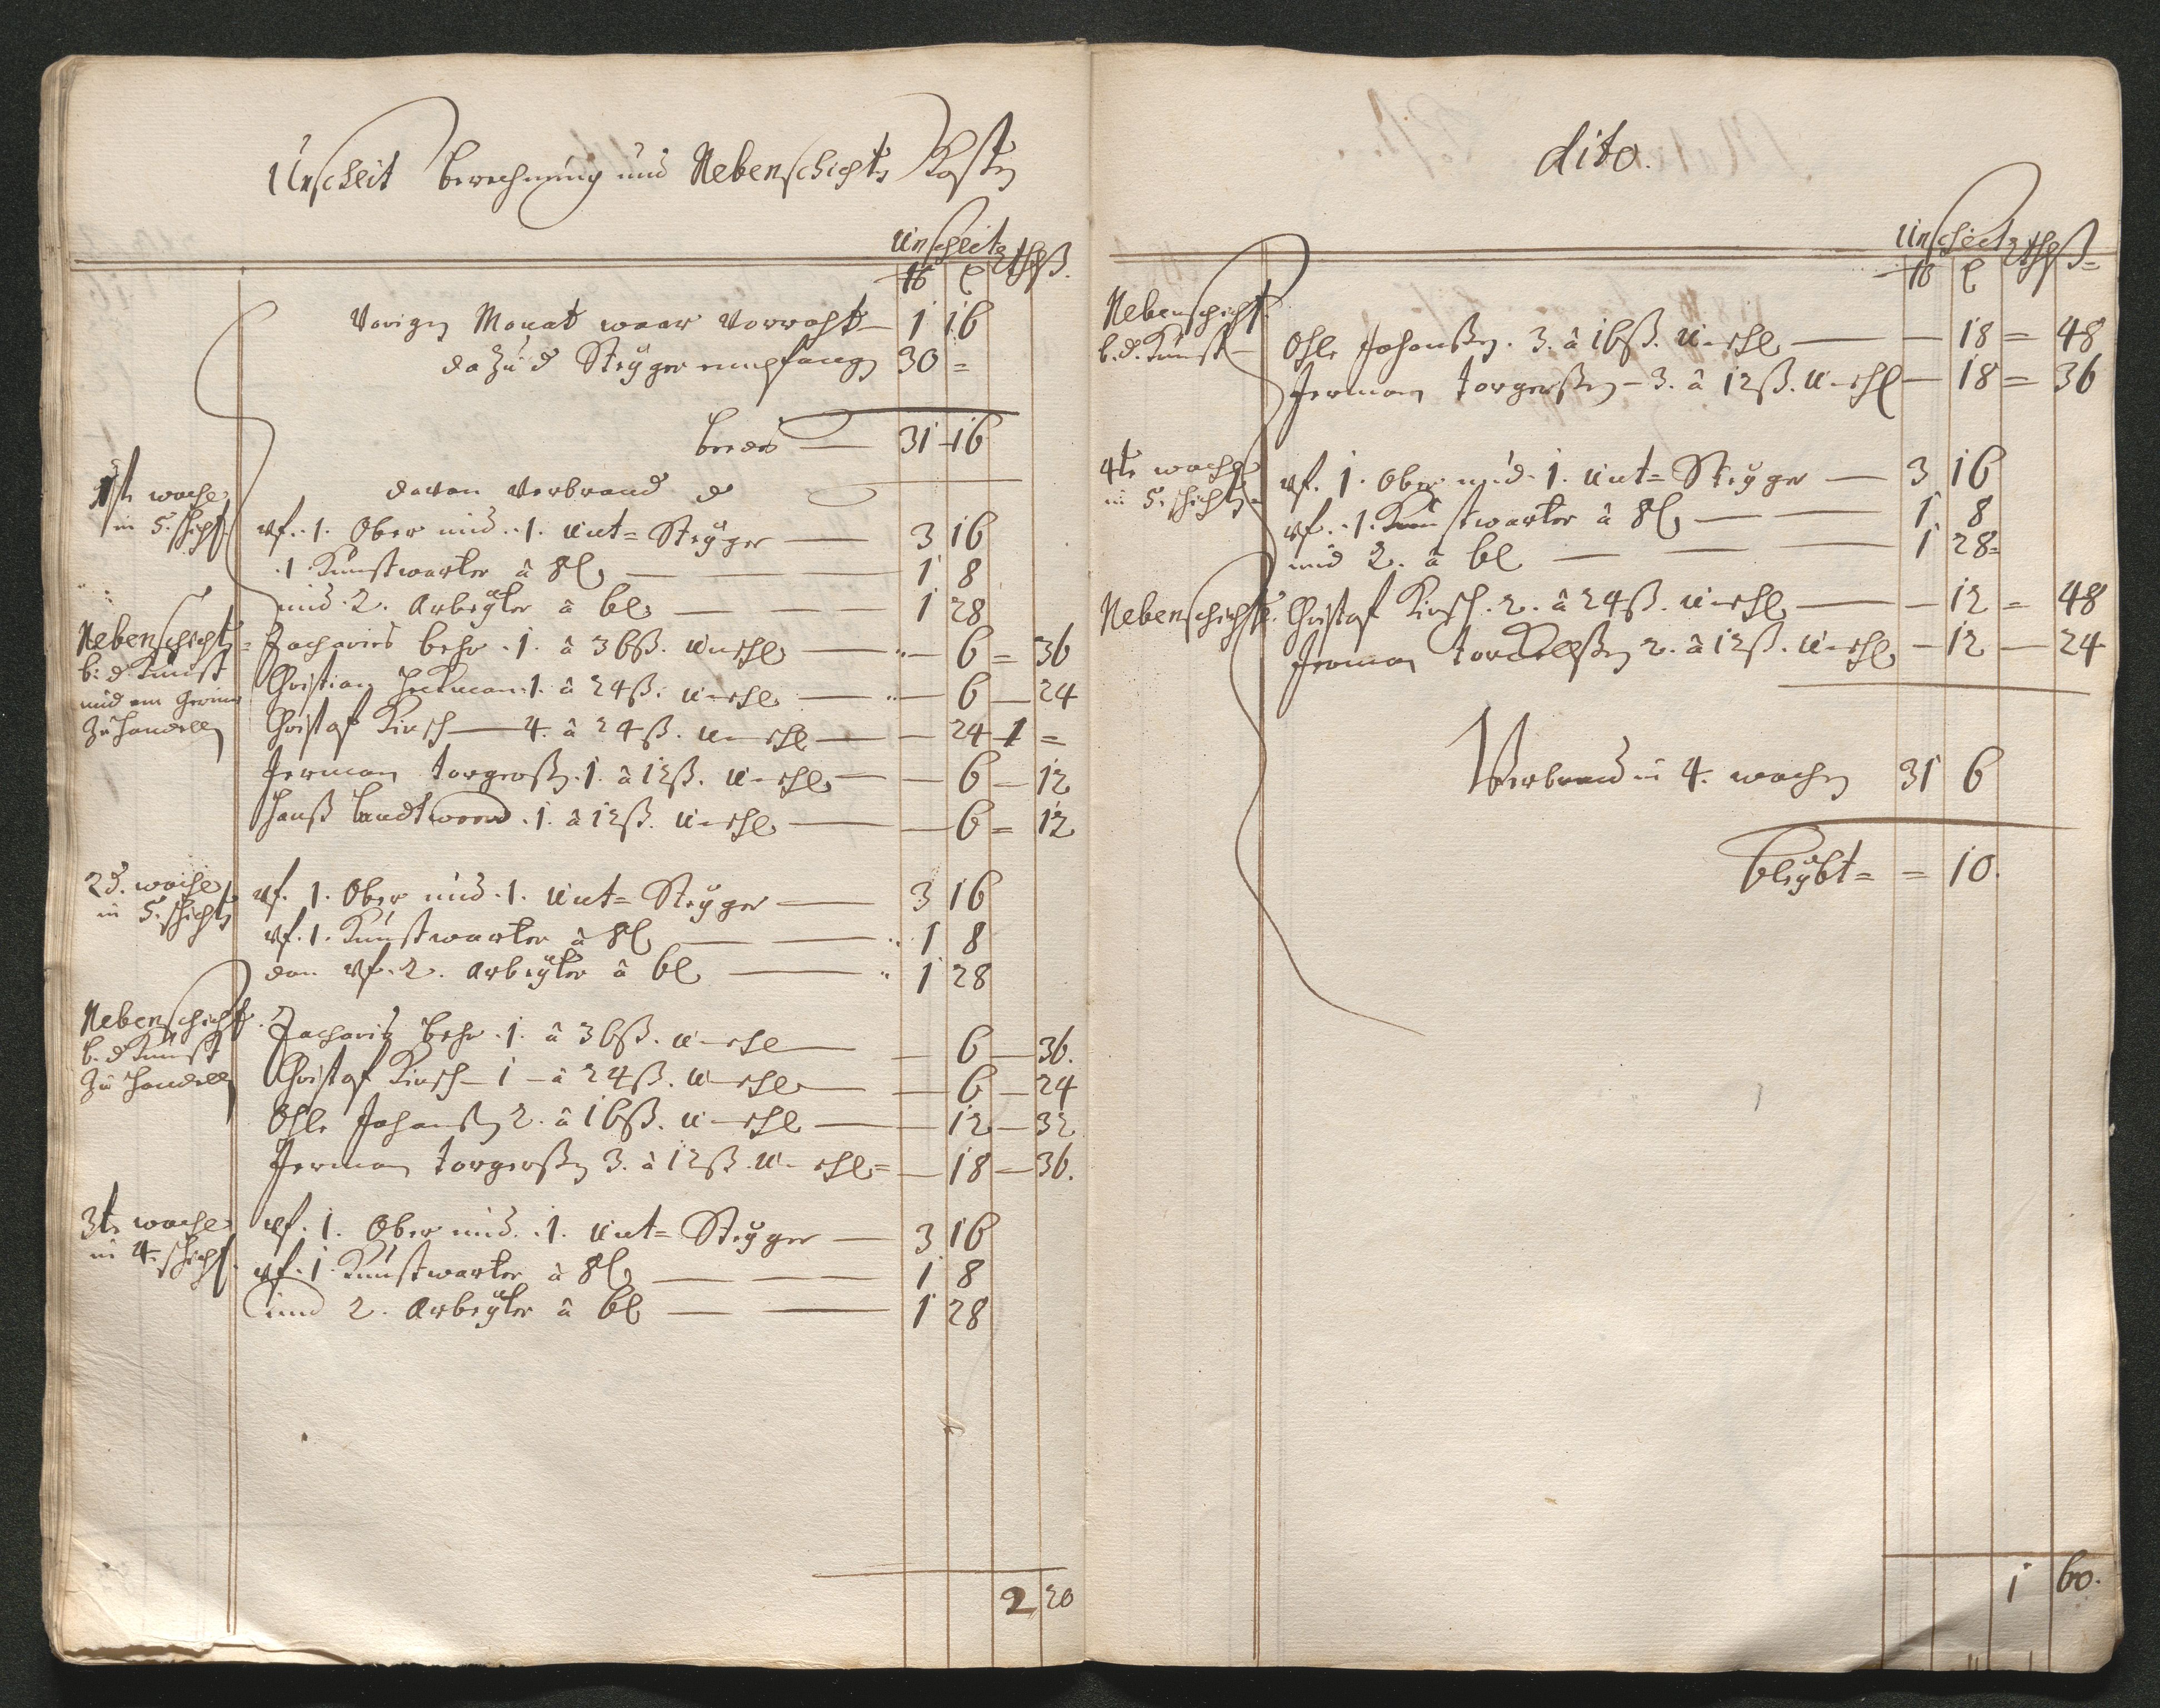 Unscheit berechnung und Nebenschichts Kosten
Unscheit Rthl ß.
℔ l
Vorigen Monat waar Vorraht — 1 16
dazu d Steÿger empfangen 30 =
beedes — 31 16
davon Verbrand d
1ste woche in 5. schicht
vf. 1. Ober und 1. Unt= Steÿger — 3 16
1 Kunstwarter â 8 l — 1 8
und 2. Arbeÿter â 6 l — 1 28
Nebenschicht b. d. Kunst und am Gerinne zu handeln
Zacharies behr 1. â 36 ß. U-schl — 6 = 36
Christian 1. â 24 ß. U-schl — 6 — 24
Christof Kirsch — 4. â 24 ß. U-schl — 24 1 =
Herman Torgerßen 1. â 12 ß. U-schl — 6 — 12
Hanß 1. â 12 ß. U-schl — 6 = 12
2d. woche in 5. schicht
vf. 1. Ober und 1. Unt= Steÿger — 3 16
vf. 1. Kunstwarter â 8 l — 1 8
dan vf. 2. Arbeÿter â 6 l — 1 28
Nebenschicht b. d Kunst zu handeln
Zacharies behr 1. â 36 ß. U-schl — 6 — 36.
Christof Kirsch — 1 — â 24 ß. U-schl — 6 — 24
Ohle Johanßen 2. â 16 ß. U-schl — 12 — 32
Herman Torgerßen 3. â 12 ß. U-schl = — 18 — 36.
3te woche in 4. schicht
vf. 1. Ober und 1. Unt= Steÿger — 3 16
vf. 1 Kunstwarter â 8 l — 1 8
und 2. Arbeÿter â 6 l — 1 28
2 20
dito.
Unscheit Rthl ß=
℔ l
Nebenschicht b. d. Kunst
Ohle Johanßen. 3. â 16 ß. U-schl — 18 = 48
Herman Torgerßen — 3. â 12 ß. U-schl — 18 = 36
4te woche in 5. schichten
vf. 1. Ober und 1. Unt= Steÿger — 3 16
vf. 1. Kunstwarter â 8 l — 1 8
und 2. â 6 l — 1 28=
Nebenschicht. Christof Kirsch. 2. â 24 ß. U-schl — 12 = 48
Herman Torkellßen 2. â 12 ß. U-schl — 12 — 24
Verbrand in 4. wochen 31 6
bleÿbt = = 10.
1 60.